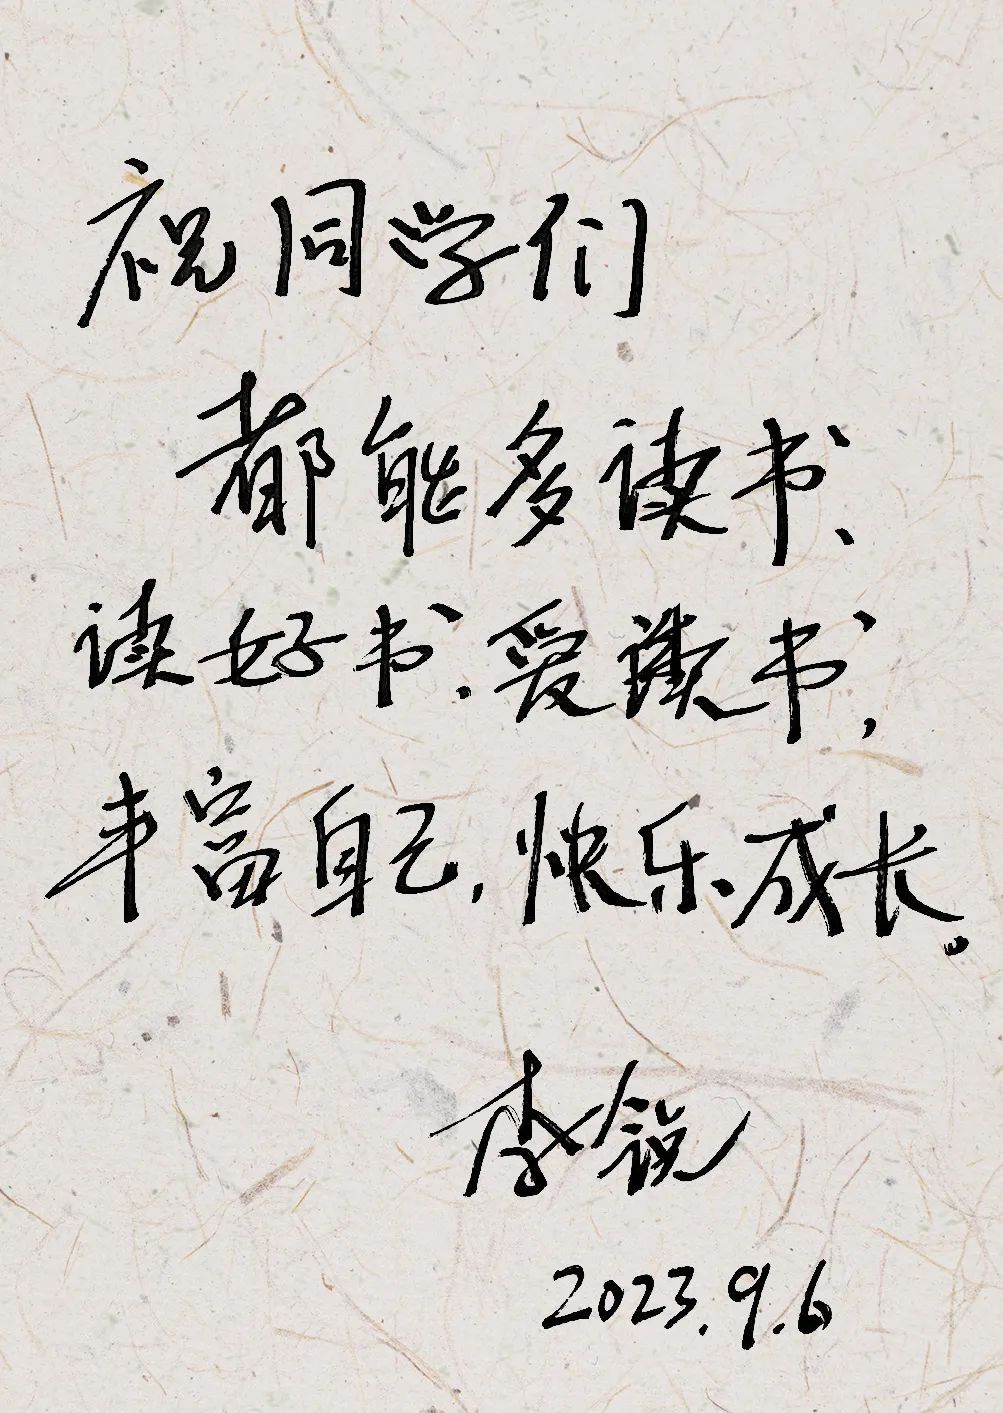 祝同学们
都能多读书、
读好书、爱读书,
丰富自己,快乐成长。
李锐
2023.9.6